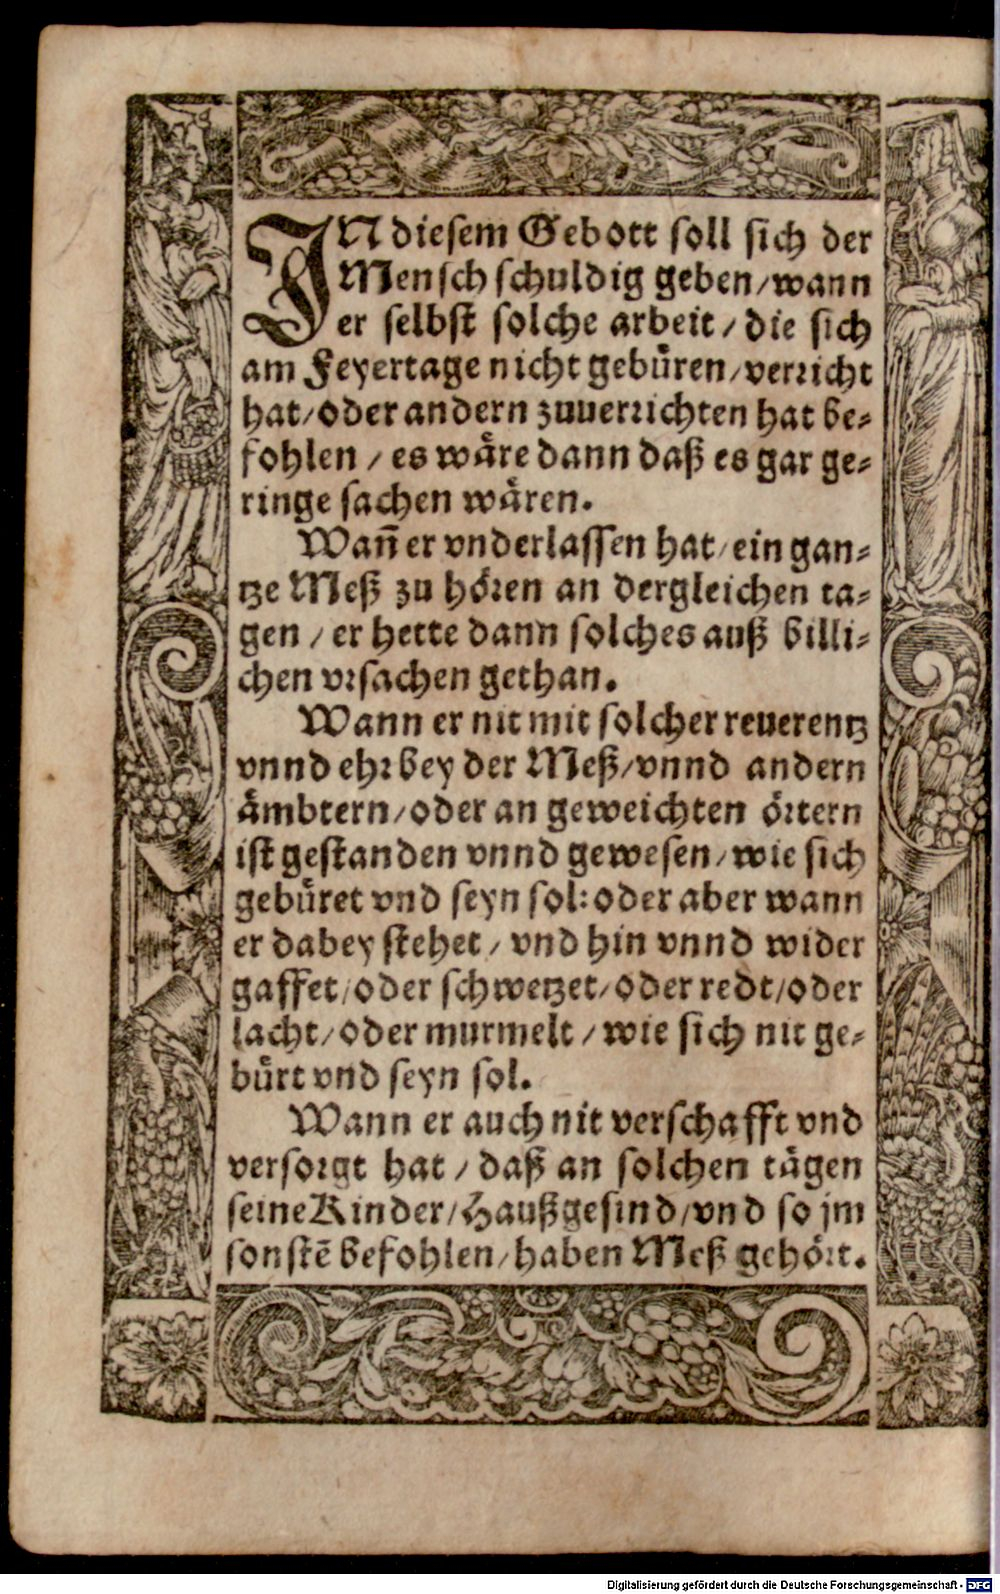 IN diesem Gebott soll sich der
Mensch schuldig geben/wann
er selbst solche arbeit / die sich
am Feyertage nicht gebüren/verricht
hat/oder andern zuuerrichten hat be⸗
fohlen / es wäre dann daß es gar ge⸗
ringe sachen wären.
Wañ er vnderlassen hat/ein gan⸗
tze Meß zu hören an dergleichen ta⸗
gen / er hette dann solches auß billi⸗
chen vrsachen gethan.
Wann er nit mit solcher reuerentz
vnnd ehr bey der Meß/vnnd andern
ämbtern/oder an geweichten örtern
ist gestanden vnnd gewesen/wie sich
gebüret vnd seyn sol: oder aber wann
er dabey stehet / vnd hin vnnd wider
gaffet/oder schwetzet/oder redt/oder
lacht/oder murmelt / wie sich nit ge⸗
bürt vnd seyn sol.
Wann er auch nit verschafft vnd
versorgt hat / daß an solchen tägen
seine Kinder/Haußgesind/vnd so jm
sonstē befohlen/haben Meß gehört.
Digitalisierung gefördert durch die Deutsche Forschungsgemeinschaft - DFG